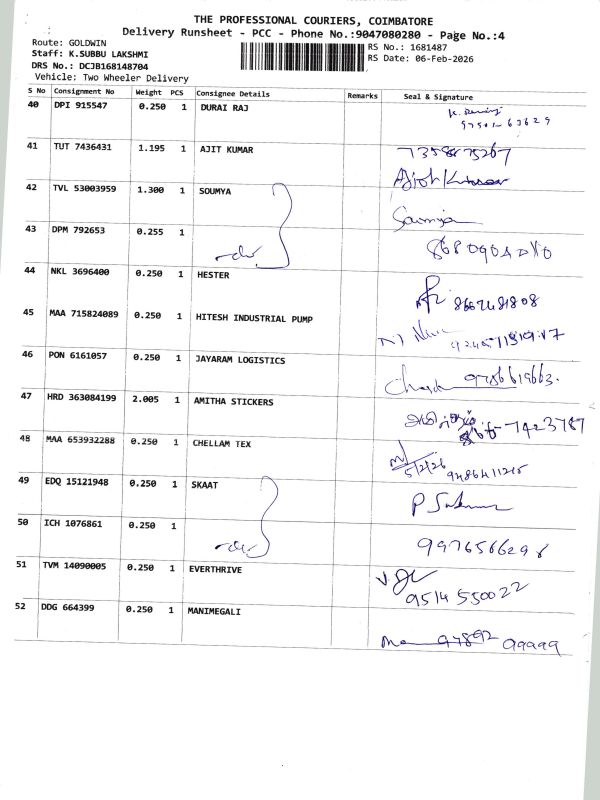 THE PROFESSIONAL COURIERS, COIMBATORE
Delivery Runsheet - PCC - Phone No.:9047080280 - Page No.:4
Route: GOLDWIN
RS No.: 1681487
Staff: K.SUBBU LAKSHMI
RS Date: 06-Feb-2026
DRS No.: DCJB168148704
Vehicle: Two Wheeler Delivery
S No Consignment No Weight PCS Consignee Details Remarks Seal & Signature
40 DPI 915547 0.250 1 DURAI RAJ
41 TUT 7436431 1.195 1 AJIT KUMAR
Ajith Kumar
42 TVL 53003959 1.300 1 SOUMYA
Soumya
43 DPM 792653 0.255 1
44 NKL 3696400 0.250 1 HESTER
45 MAA 715824089 0.250 1 HITESH INDUSTRIAL PUMP
46 PON 6161057 0.250 1 JAYARAM LOGISTICS
47 HRD 363084199 2.005 1 AMITHA STICKERS
48 MAA 653932288 0.250 1 CHELLAM TEX
5/2/26
49 EDQ 15121948 0.250 1 SKAAT
50 ICH 1076861 0.250 1
9976566298
51 TVM 14090005 0.250 1 EVERTHRIVE
9514550022
52 DDG 664399 0.250 1 MANIMEGALI
97892 99999